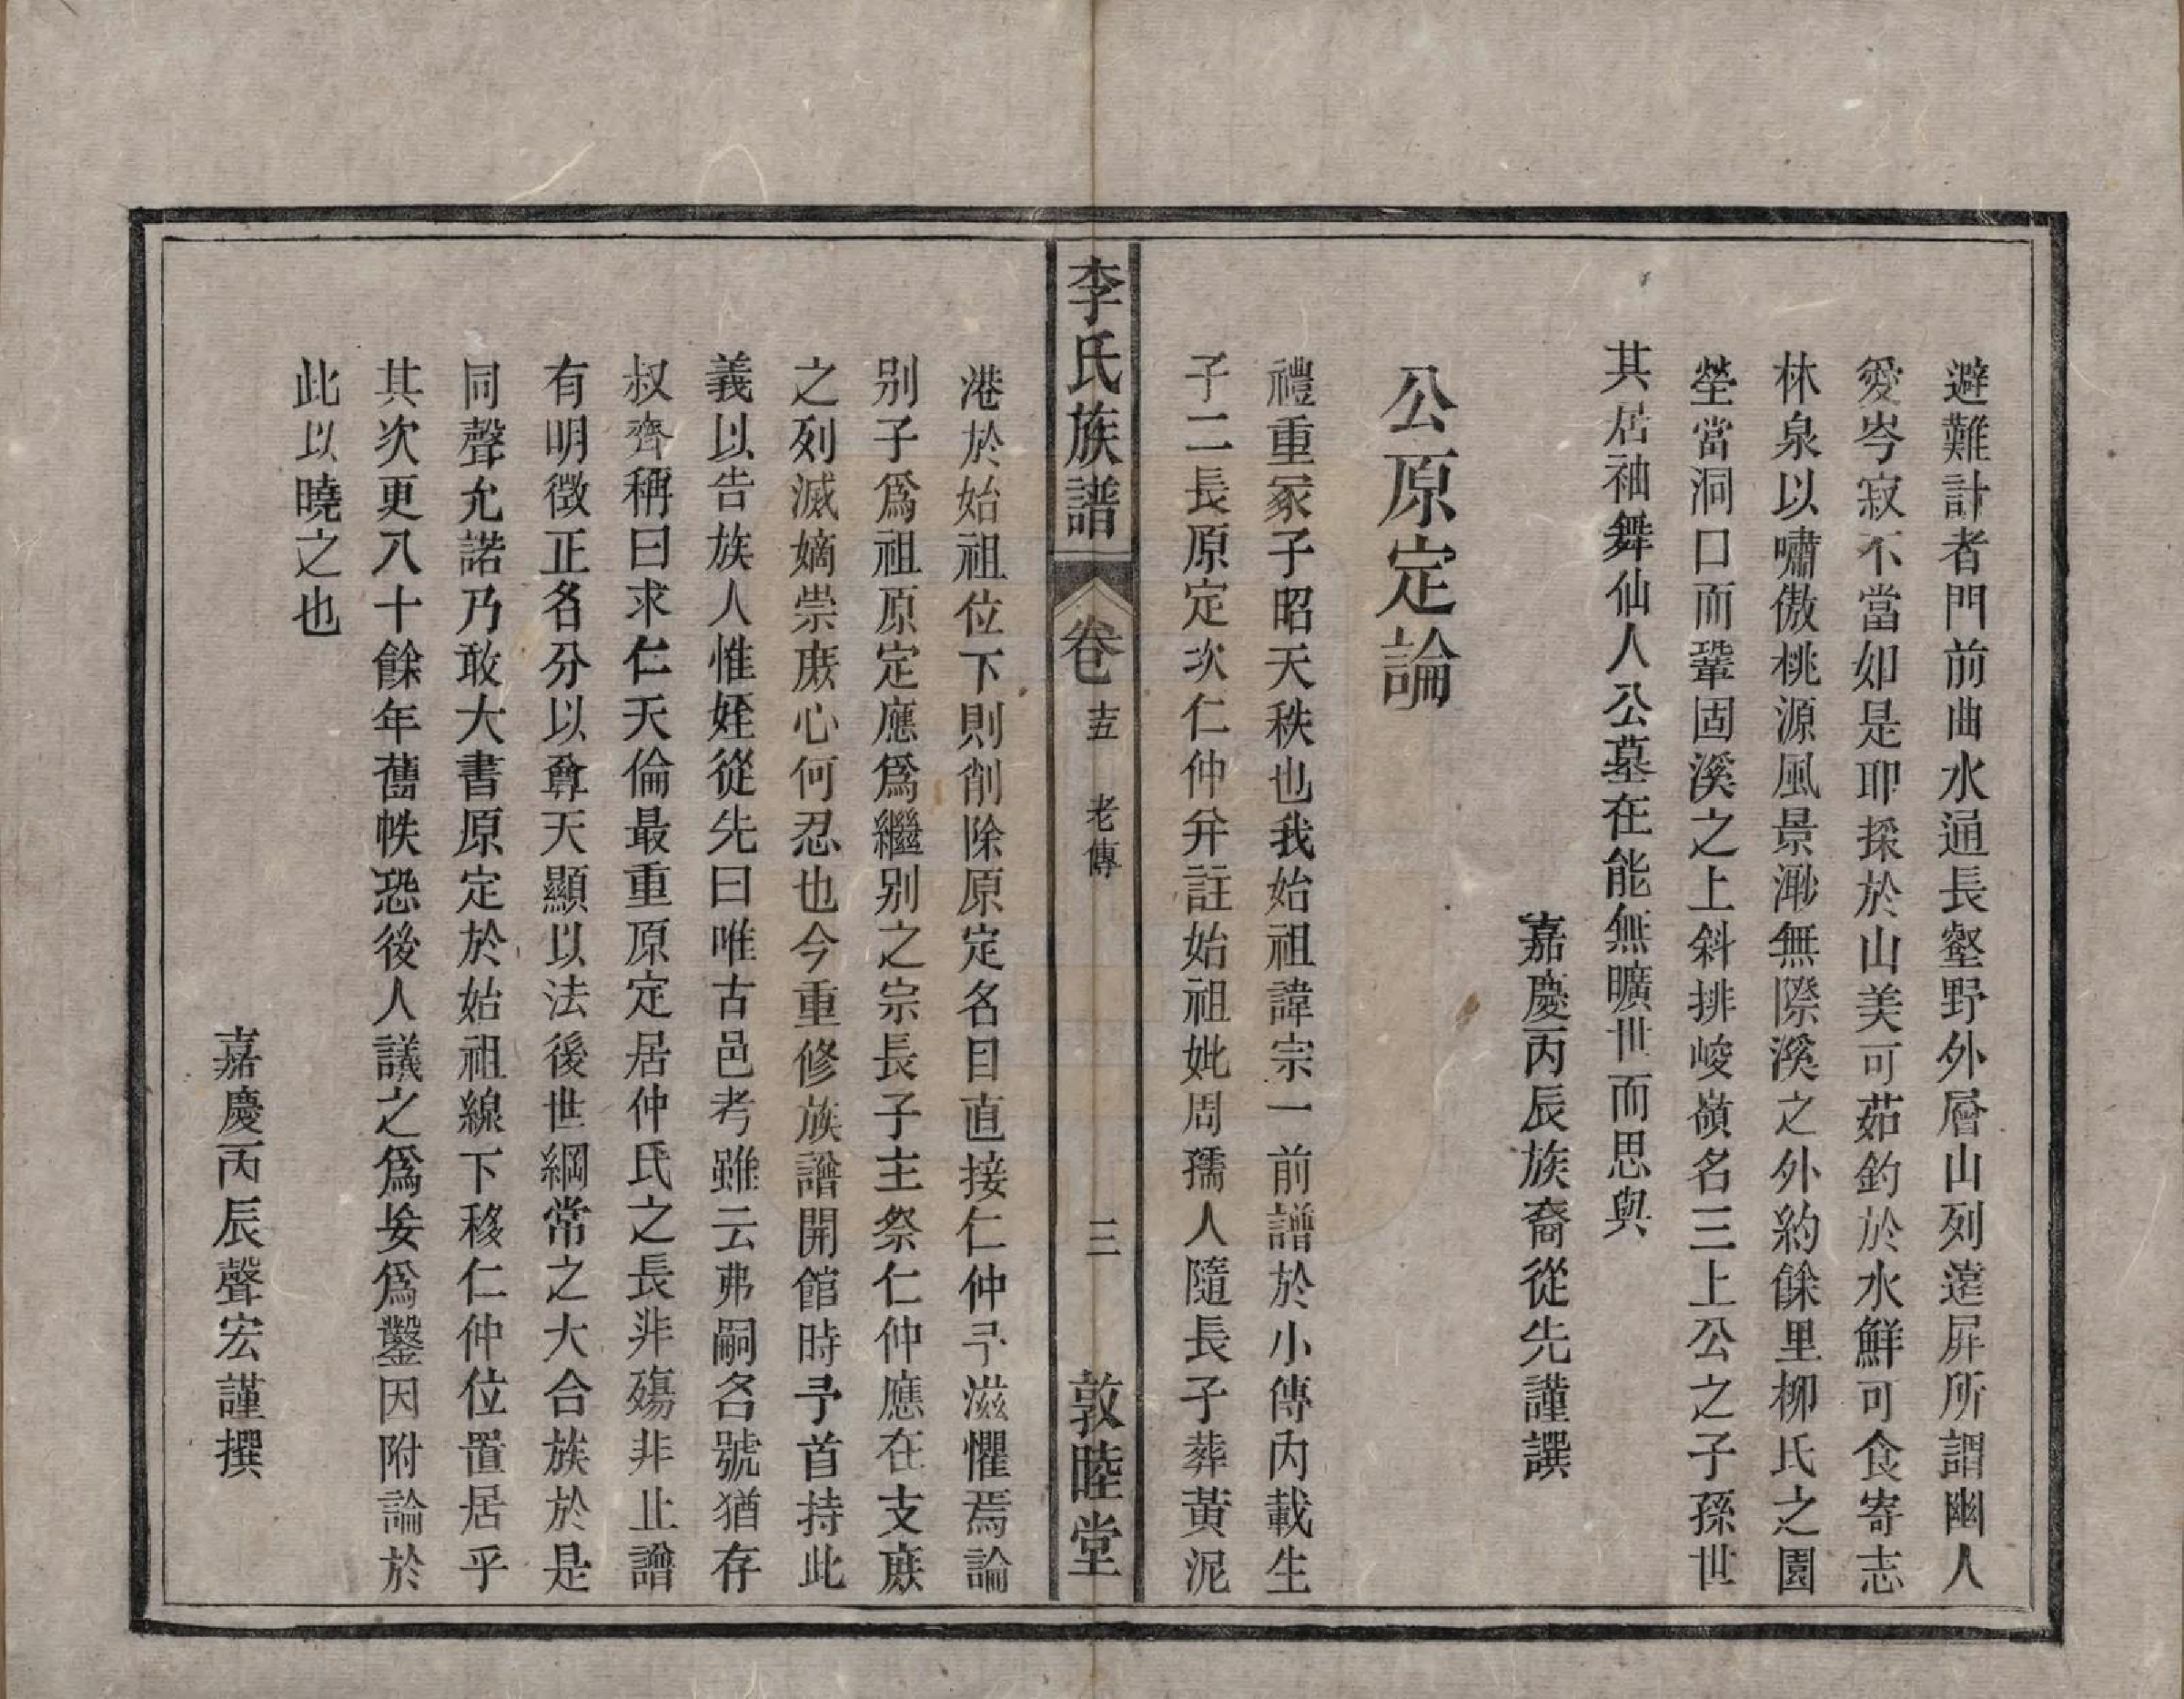 避難計者門前曲水通長壑野外層山列遠屛所謂幽人
愛岑寂不當如是耶採於山美可茹釣於水鮮可食寄志
林泉以嘯傲桃源風景渺無際溪之外約餘里柳氏之園
塋當洞口而鞏固溪之上斜排峻嶺名三上公之子孫世
其居袖舞仙人公墓在能無曠世而思與
嘉慶丙辰族裔從先謹譔
公原定論
禮重冢子昭天秩也我始祖諱宗一前譜於小傳內載生
子二長原定次仁仲幷註始祖妣周孺人隨長子葬黃泥
李氏族譜 卷 十五 老傳 三 敦睦堂
港於始祖位下則削除原定名目直接仁仲予滋懼焉論
别子爲祖原定應爲繼别之宗長子主祭仁仲應在支庻
之列滅嫡崇庻心何忍也今重修族譜開館時予首持此
義以告族人惟姪從先曰唯古邑考雖云弗嗣名號猶存
叔齊稱曰求仁天倫最重原定居仲氏之長非殤非止譜
有明徵正名分以尊天顯以法後世綱常之大合族於是
同聲允諾乃敢大書原定於始祖線下移仁仲位置居乎
其次更八十餘年舊帙恐後人議之爲妄爲鑿因附論於
此以曉之也
嘉慶丙辰聲宏謹撰